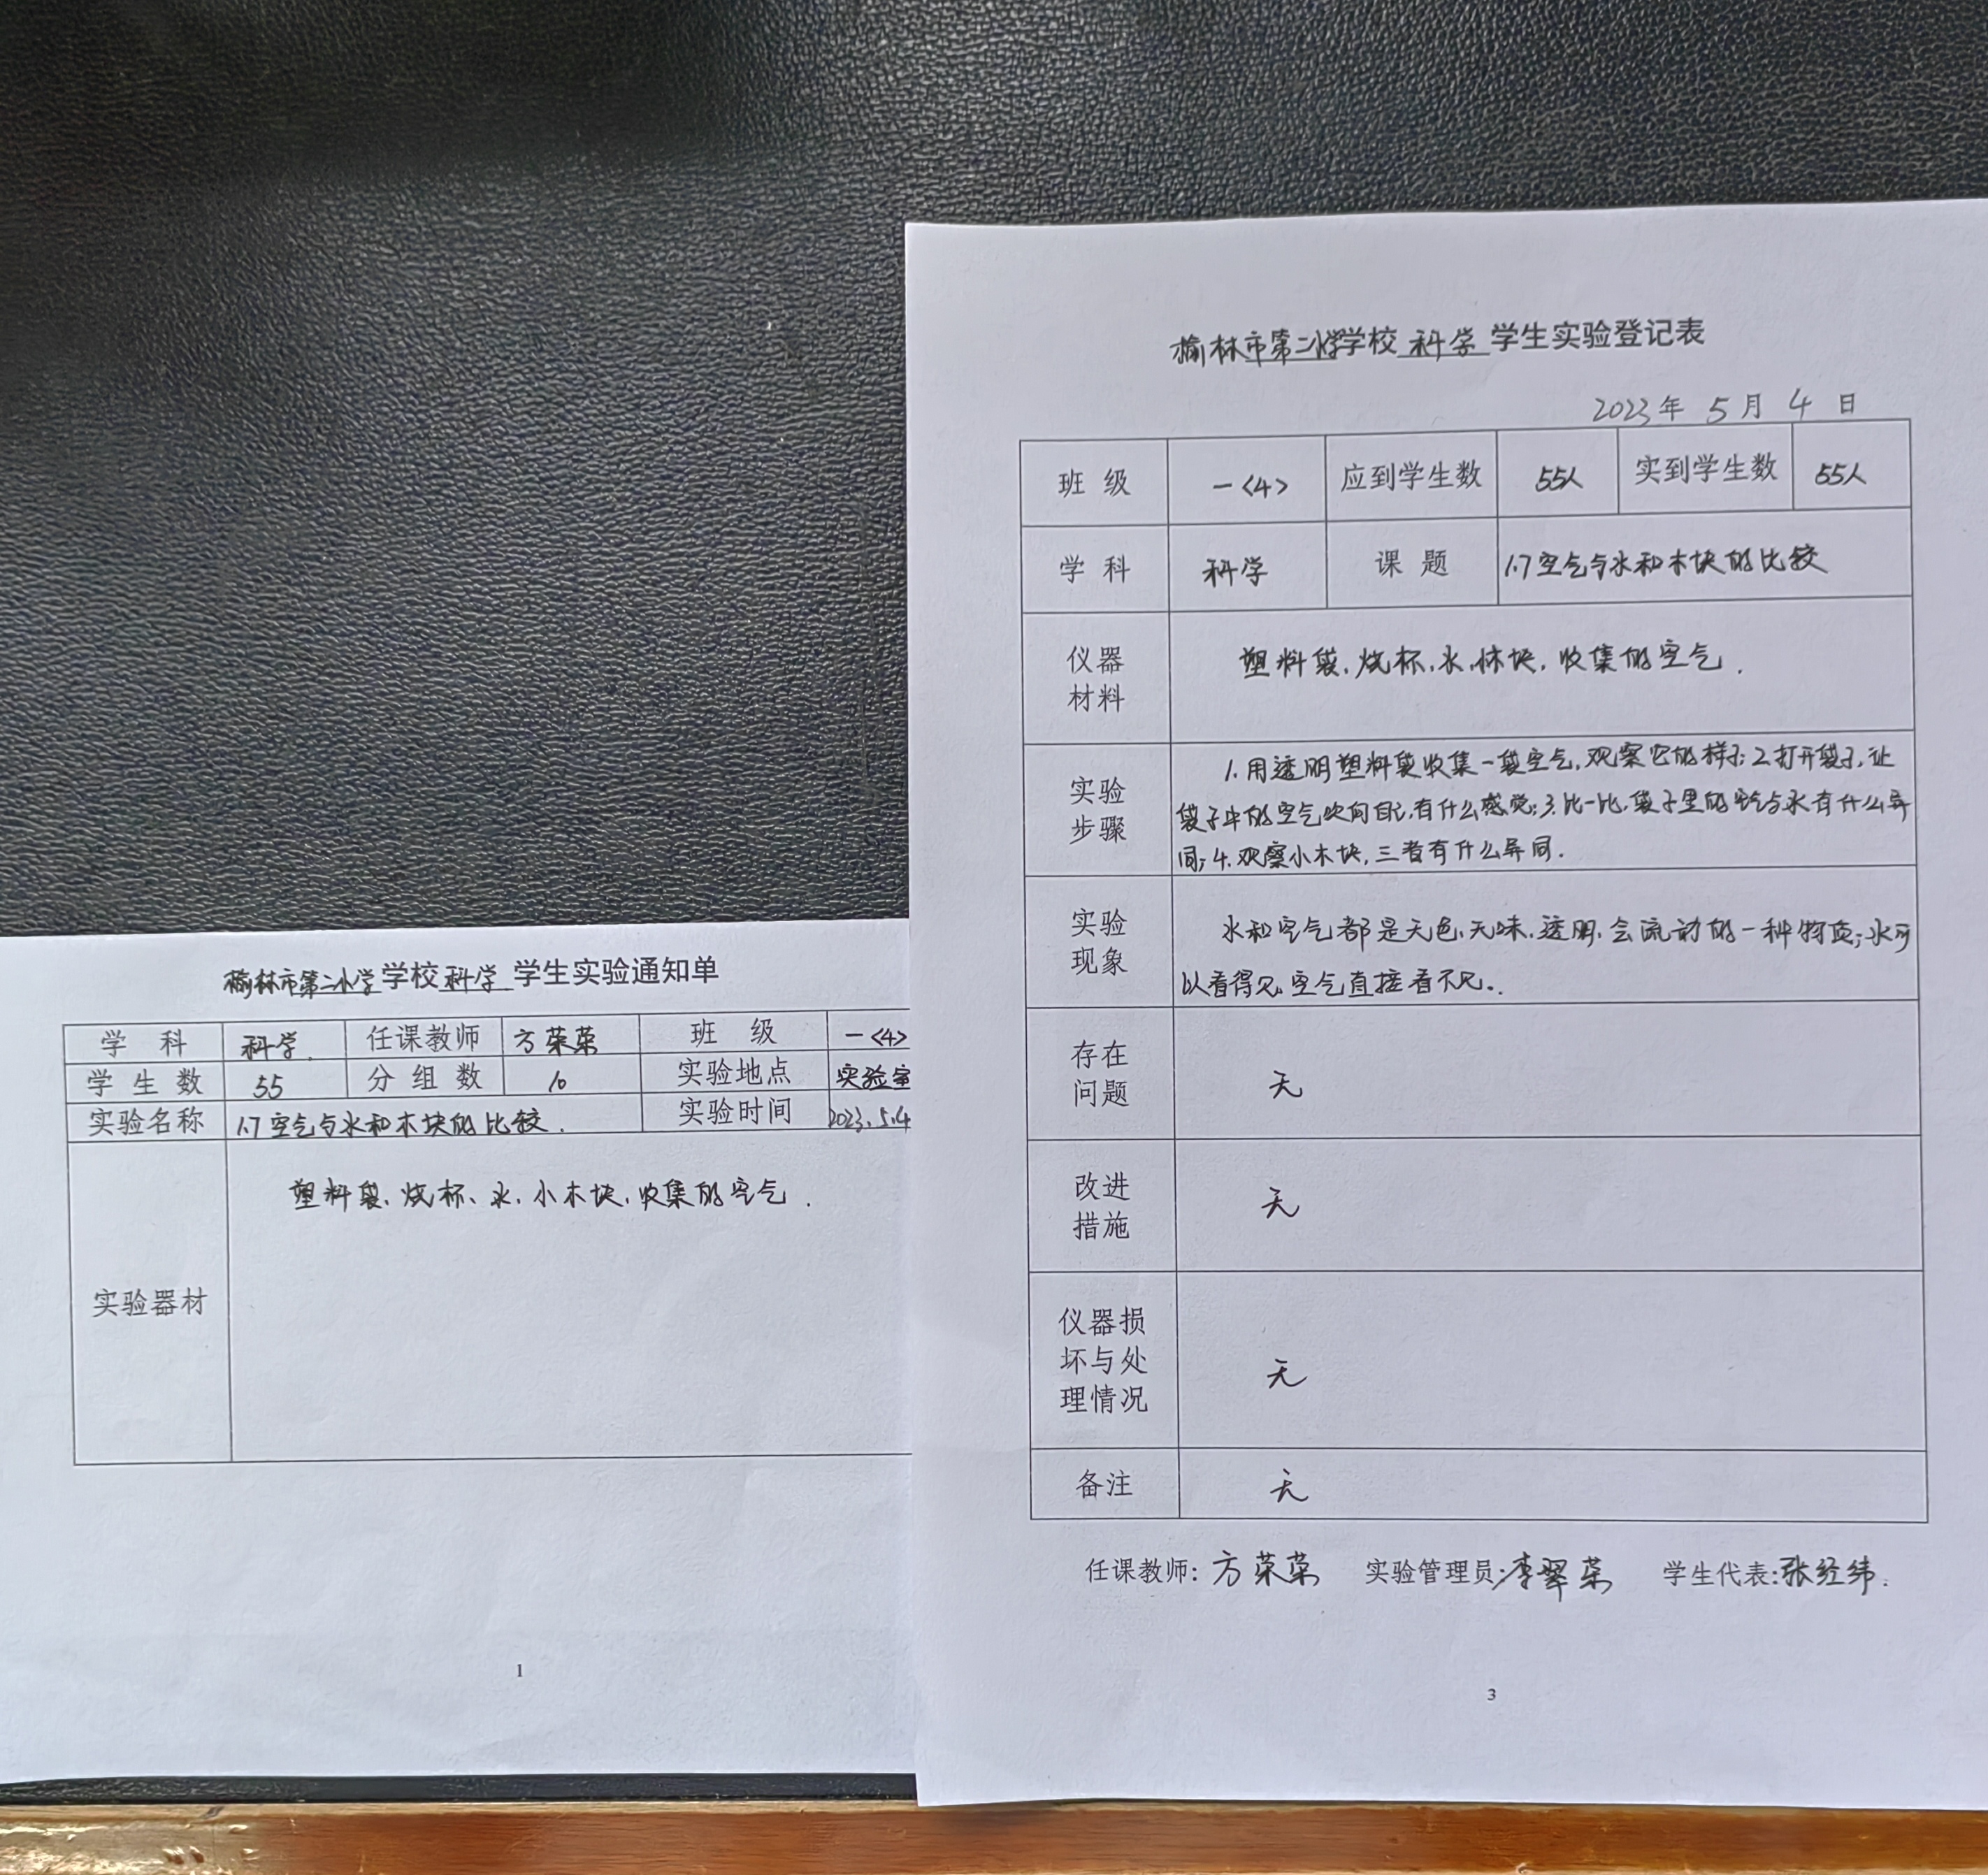 榆林市第二小学学校 科学 学生实验通知单
学 科 科学 任课教师 方荣荣 班 级 一<4>
学 生 数 55 分 组 数 10 实验地点 实验室
实验名称 1.7空气与水和木块的比较. 实验时间 2023.5.4
实验器材 塑料袋、烧杯、水、小木块、收集的空气.
1
榆林市第二小学学校 科学 学生实验登记表
2023年 5月 4日
班 级 一<4> 应到学生数 55人 实到学生数 55人
学 科 科学 课 题 1.7空气与水和木块的比较
仪器
材料
塑料袋、烧杯、水、木块、收集的空气.
实验
步骤
1.用透明塑料袋收集一袋空气,观察它的样子;2.打开袋子,让
袋子中的空气吹向自己,有什么感觉;3.比一比,袋子里的空气与水有什么异
同;4.观察小木块,三者有什么异同.
实验
现象
水和空气都是无色、无味、透明、会流动的一种物质;水可
以看得见,空气直接看不见。
存在
问题
无
改进
措施
无
仪器损
坏与处
理情况
无
备注 无
任课教师: 方荣荣 实验管理员: 李翠荣 学生代表: 张经纬.
3